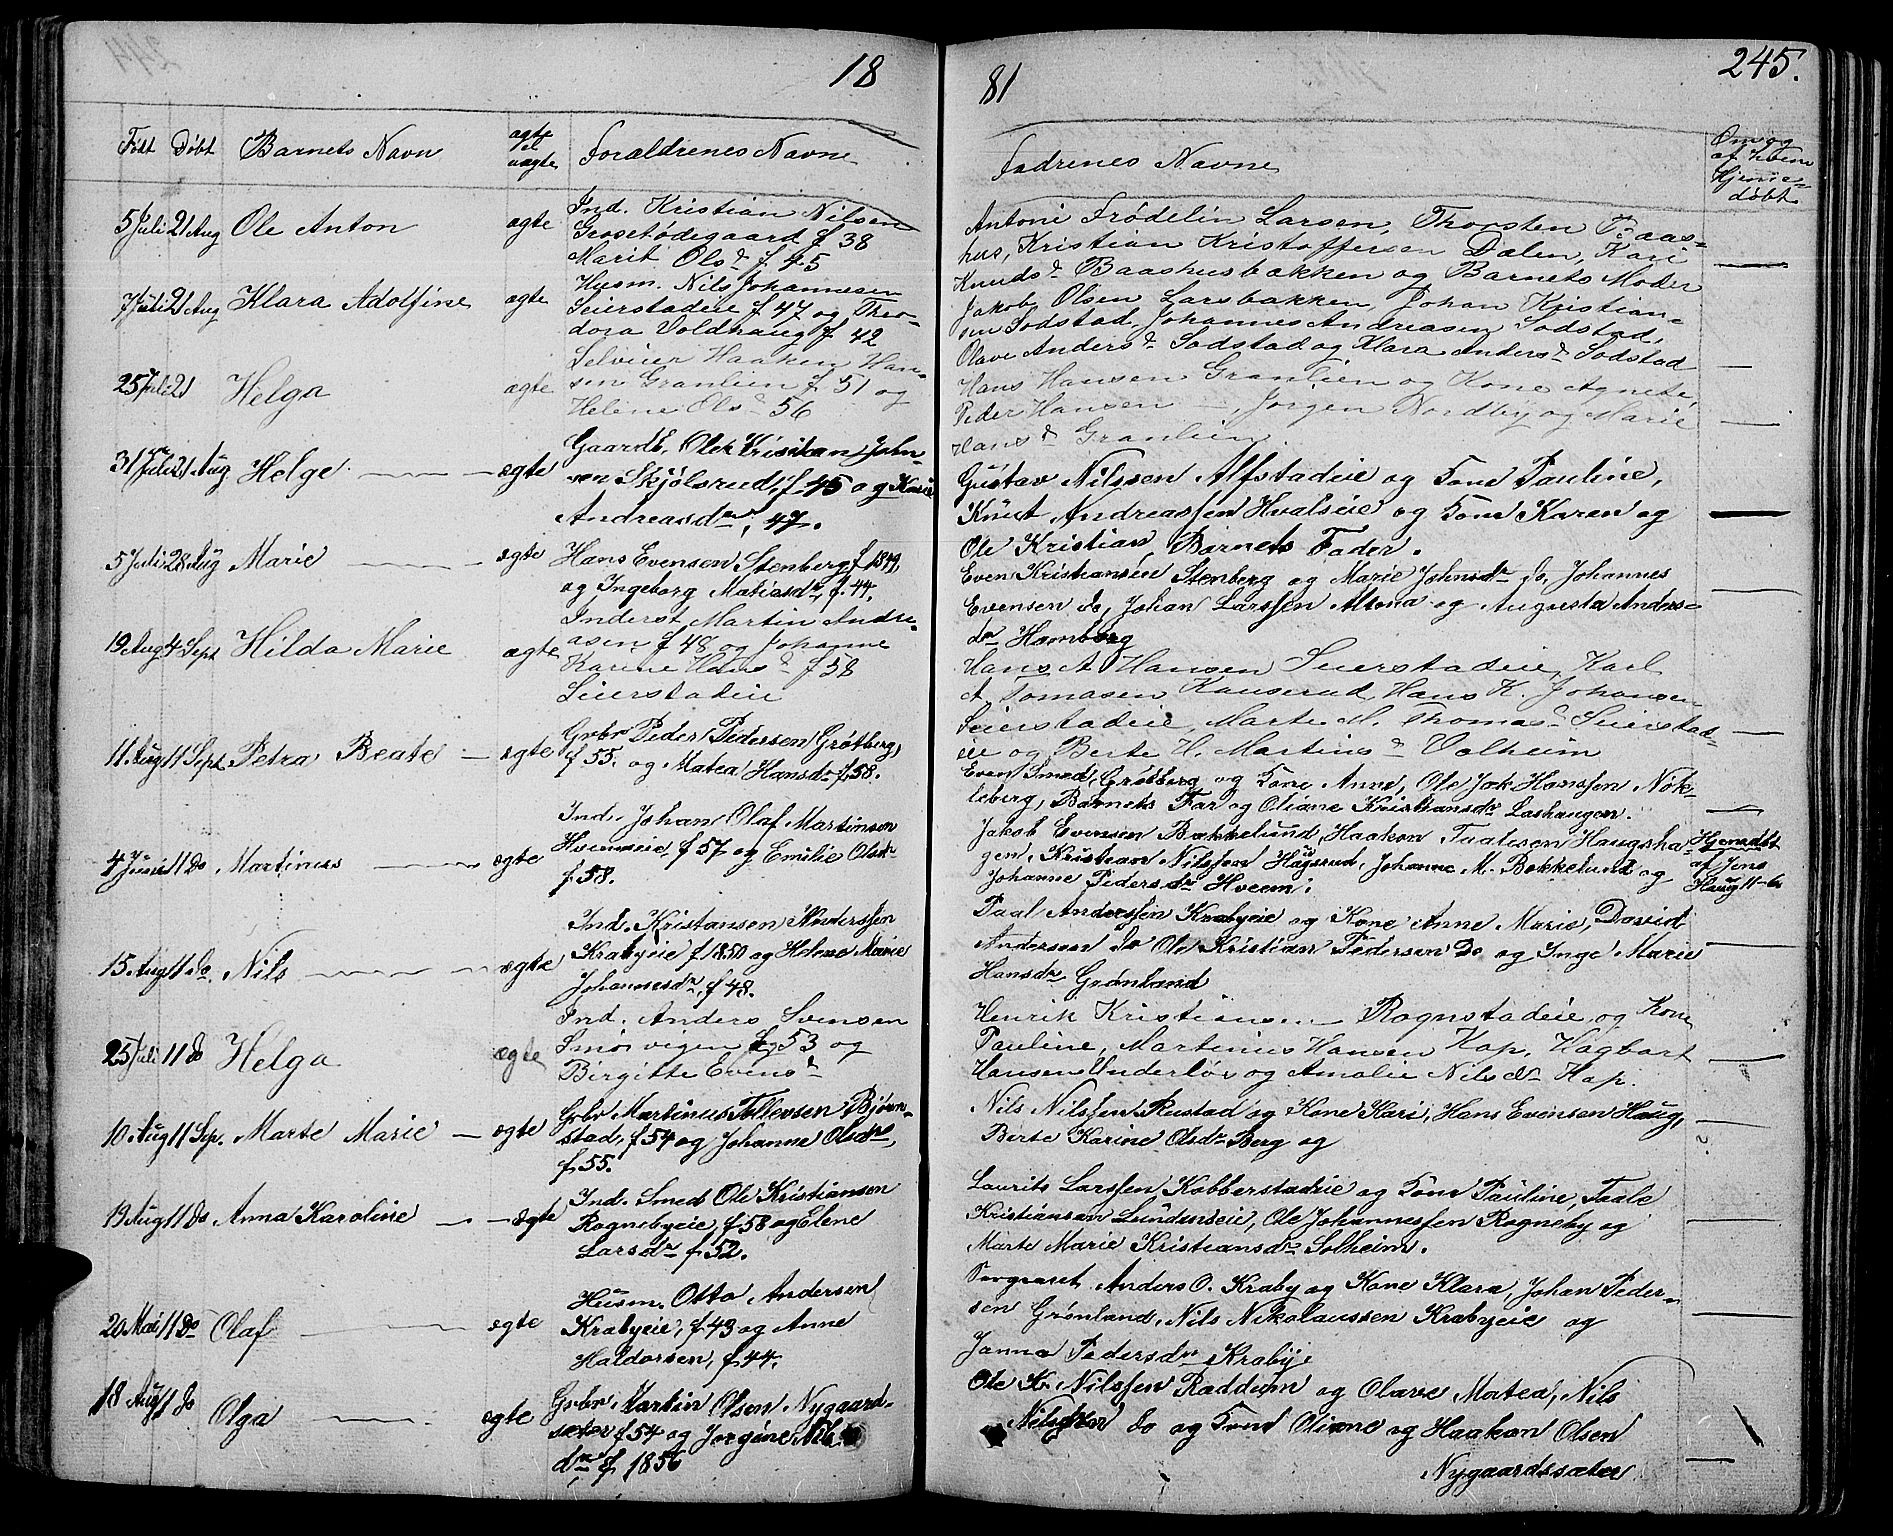 18
Født Døbt Barnets Navn ægte el uægte Forældrenes Navne
5 Juli 21 Aug Ole Anton ægte Ind. Kristian Nilsen
Grosetødegaard f 38
Marit Olsd. f. 45
7 Juli 21 Aug Klara Adolfine ægte Husm. Nils Johannesen
Seierstadeie f 47 og Theo-
dora Voldhaug f 42
25 Juli 21 Helga ægte Selveier Haaken Han-
sen Granlien f 51 og
Helene Olsd 56
31 Juli 21 Aug Helge ægte Gaardb. Ole Kristian John-
sen Skjølsrud, f. 45 og Karie
Andreasdr, 47.
5 Juli 28 Aug Marie ægte Hans Evensen Stenberg f 1849,
og Ingeborg Matiasdr, f. 44.
19 Aug 4 Sept Hilda Marie ægte Inderst Martin Andre-
asen f 48 og Johanne
Karine Hansd f 58
Seierstadeie
11 Aug 11 Sept Petra Beate ægte Gvbr Peder Pedersen Grøtberg,
f 55. og Matea Hansdr f 58.
4 Juni 11 Do Martinus ægte Ind. Johan Olaf Martinsen
Hveemeie, f 57 og Emilie Olsdr
f 58.
15 Aug 11 do Nils ægte Ind. Kristansen Anderssen
Krabyeie f 1850 og Helene Marie
Johannesdr, f 48.
25 Juli 11 do Helga ægte Ind. Anders Svensen
Smørvegen f 53 og
Birgitte Evensd
10 Aug 11 Sep. Marte Marie ægte Gvbr Martinus Tollevsen Bjørn-
stad, f 54 og Johanne Olsdr,
f 55.
19 Aug 11 do Anna Karoline ægte Ind. Smed Ole Kristiansen
Rognebyeie, f 58 og Elene
Larsdr f 52.
20 Mai 11 Do Olaf ægte Husm. Otto Andersen
Krabyeie, f 43 og Anne
Haldorsen, f 44.
18 Aug 11 do Olga ægte Gvbr Martin Olsen Nygaard-
sæter f 54 og Jørgine Nils
dr f 1856
81
245.
Fadrenes Navne
Om og
af hvem
Hjemme-
døbt
Antoni Frødelin Larsen, Thorsten Baas-
hus, Kristian Kristoffersen Dalen, Kari
Knudsd Baashusbakken og Barnets Moder
Jakob Olsen Larsbakken, Johan Kristian-
sen Sodstad, Johannes Andreasen Sodstad,
Olave Andersd Sodstad og Klara Andersd Sodstad
Hans Hansen Granlien og Kone Agnete,
Peder Hansen —, Jørgen Nordby og Marie
Hansd Granlien
Gustav Nilssen Alfstadeie og Kone Pauline,
Knut Andreassen Hvalseie og Kone Karen og
Ole Kristian, Barnets Fader.
Even Kristiansen Stenberg og Marie Johnsdr do, Johannes
Evensen do, Johan Larssen Altona og Augusta Anders-
dr Hamberg
Hans A Hansen Seierstadeie, Karl
A Tomasen Kauserud, Hans K. Johansen
Seierstadeie, Marte M. Thomasd Seierstad-
eie og Berte H. Martinsd Volheim
Even Smed, Grøtberg og Kone Anne, Ole Jak Hanssen Nøk-
leberg, Barnets Far og Oliane Kristiansdr Lashaugen.
Jakob Evensen Bækkelund, Haakon Taalesen Haugsha-
gen, Kristian Nilssen Hagsrud, Johanne M. Bækkelund og
Johanne Pedersdr Hveem.
Hjemedøbt
af Jens
Haug 11-6
Paal Anderssen Krabyeie og Kone Anne Marie, David
Andersen do Ole Kristian Pedersen Do og Inge Marie
Hansdr Grønland
Henrik Kristians... Rognstadeie og Kone
Pauline, Martinius Hansen Hap, Hagbart
Hansen Underlør og Amalie Nilsdr Hap.
Nils Nilssen Rustad og Kone Kari, Hans Evensen Haug,
Berte Karine Olsdr Berg og
Laurits Larssen Kobberstadeie og Kone Pauline, Taale
Kristiansen Lundenseie, Ole Johannessen Rogneby og
Marte Marie Kristiansdr Solheim.
Sergeant Anders O. Kraby og Kone Klara, Johan Peder-
sen Grønland, Nils Nikolaussen Krabyeie og
Janna Pedersdr Kraby.
Ole K. Nilssen Raddum og Olave Matea, Nils
Nilssen do og Kone Oliane og Haakon Olsen
Nygaardssæter